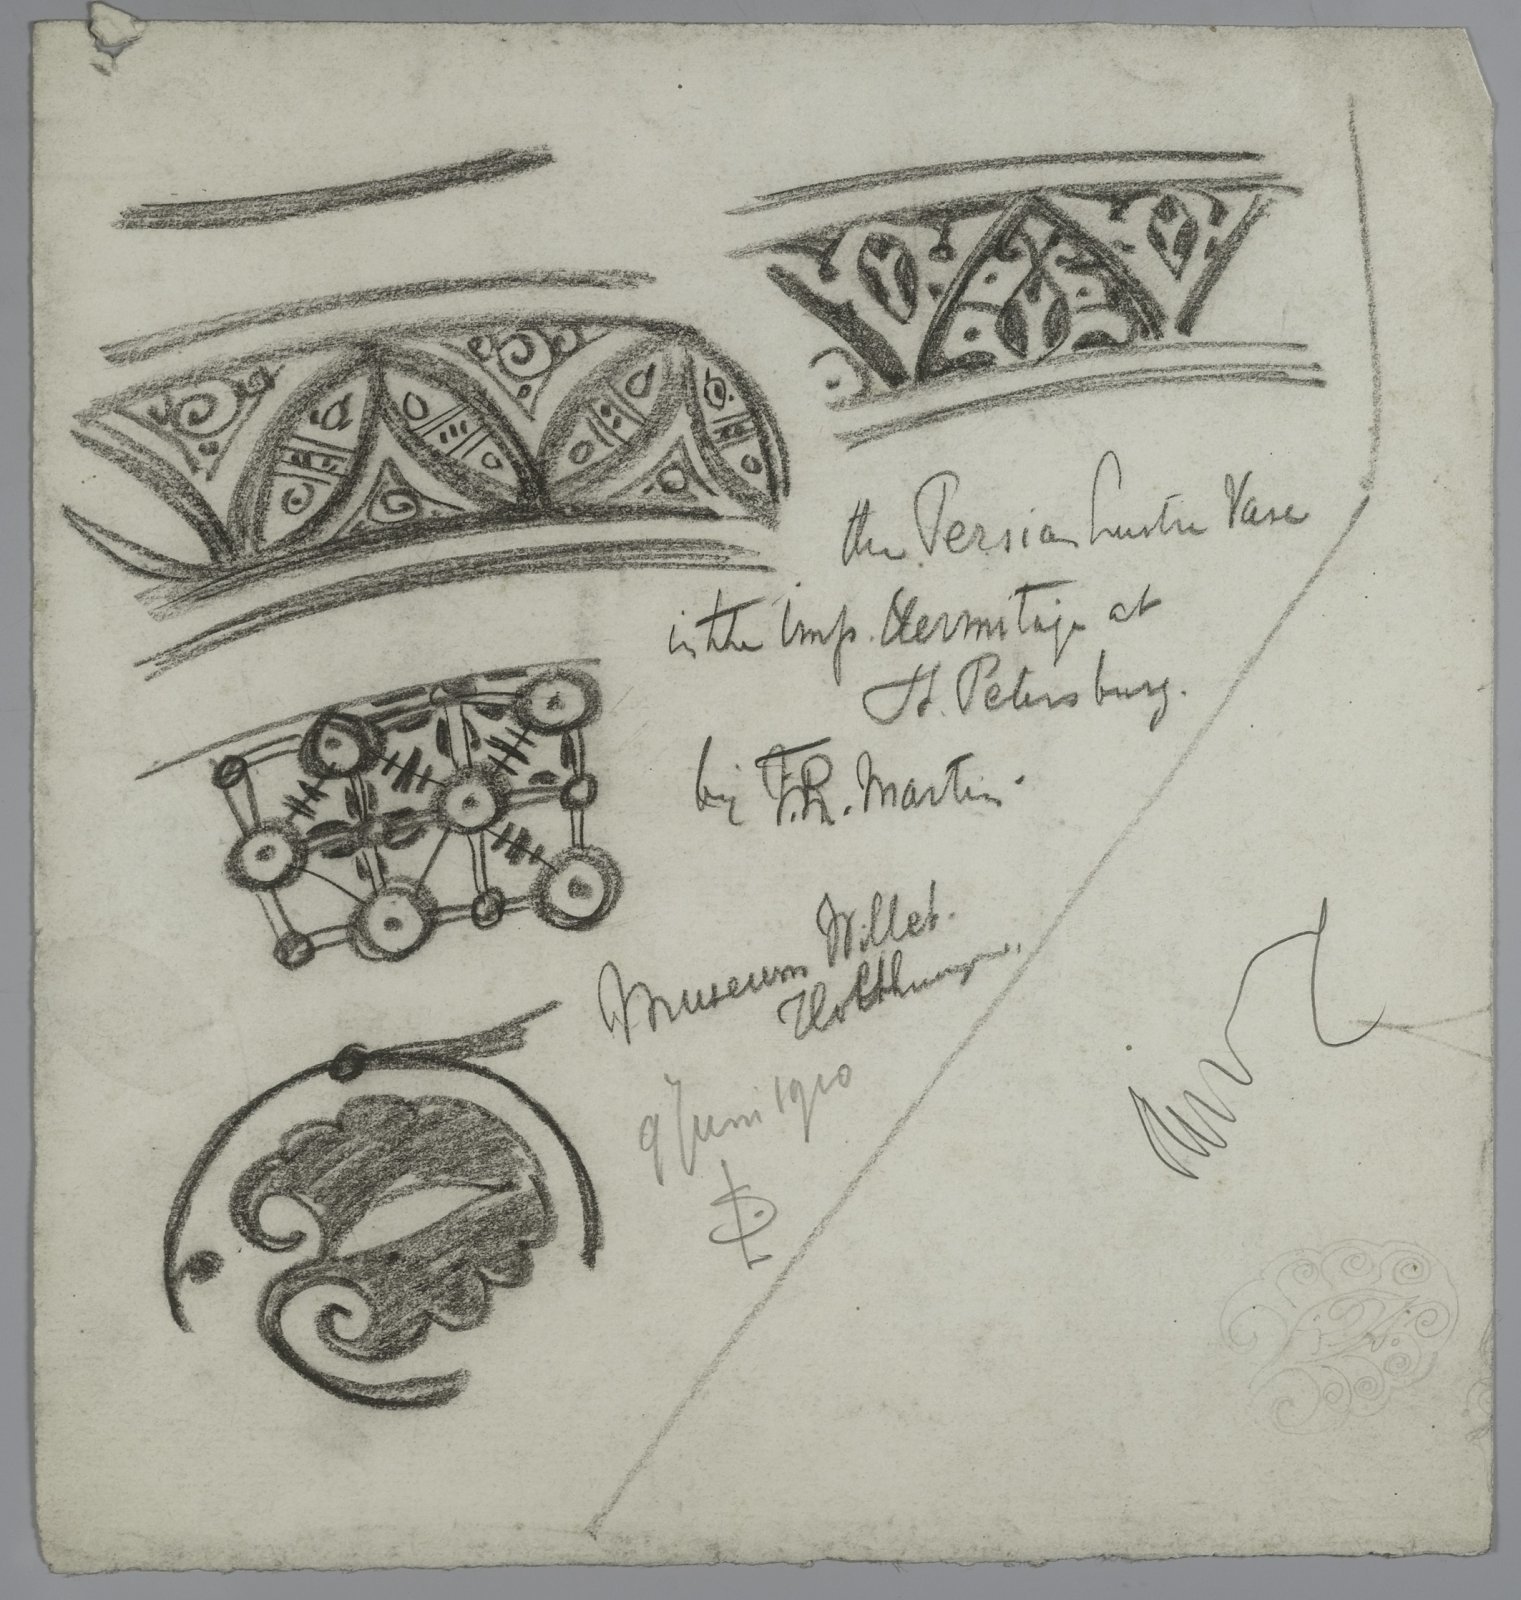 the Persian Lustre Vase
in the Imp. Hermitage at
St. Petersburg.
by F.R. Martin.
Museum Willet.
Holthuysen"
9 Juni 1910